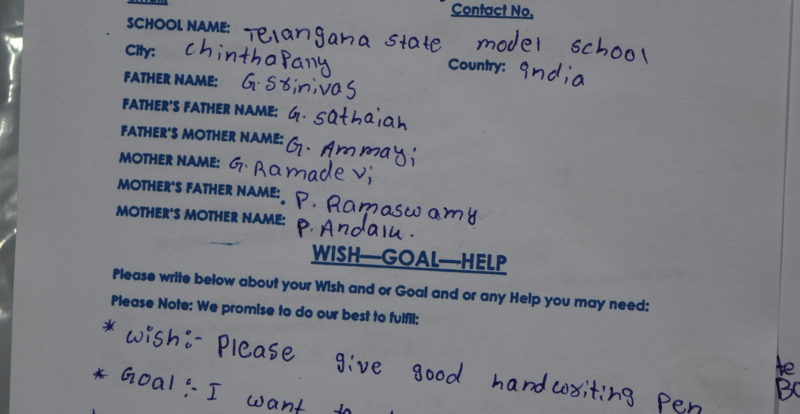 Contact No.
SCHOOL NAME: Telangana state model school
City: Chinthapany Country: India
FATHER NAME: G. Srinivas
FATHER'S FATHER NAME: G. Sathaiah
FATHER'S MOTHER NAME: G. Ammayi
MOTHER NAME: G. Ramadevi
MOTHER'S FATHER NAME: P. Ramaswamy
MOTHER'S MOTHER NAME: P. Andalu.
WISH—GOAL—HELP
Please write below about your Wish and or Goal and or any Help you may need:
Please Note: We promise to do our best to fulfil:
* wish:- Please give good handwriting Pen
* Goal:- I want to